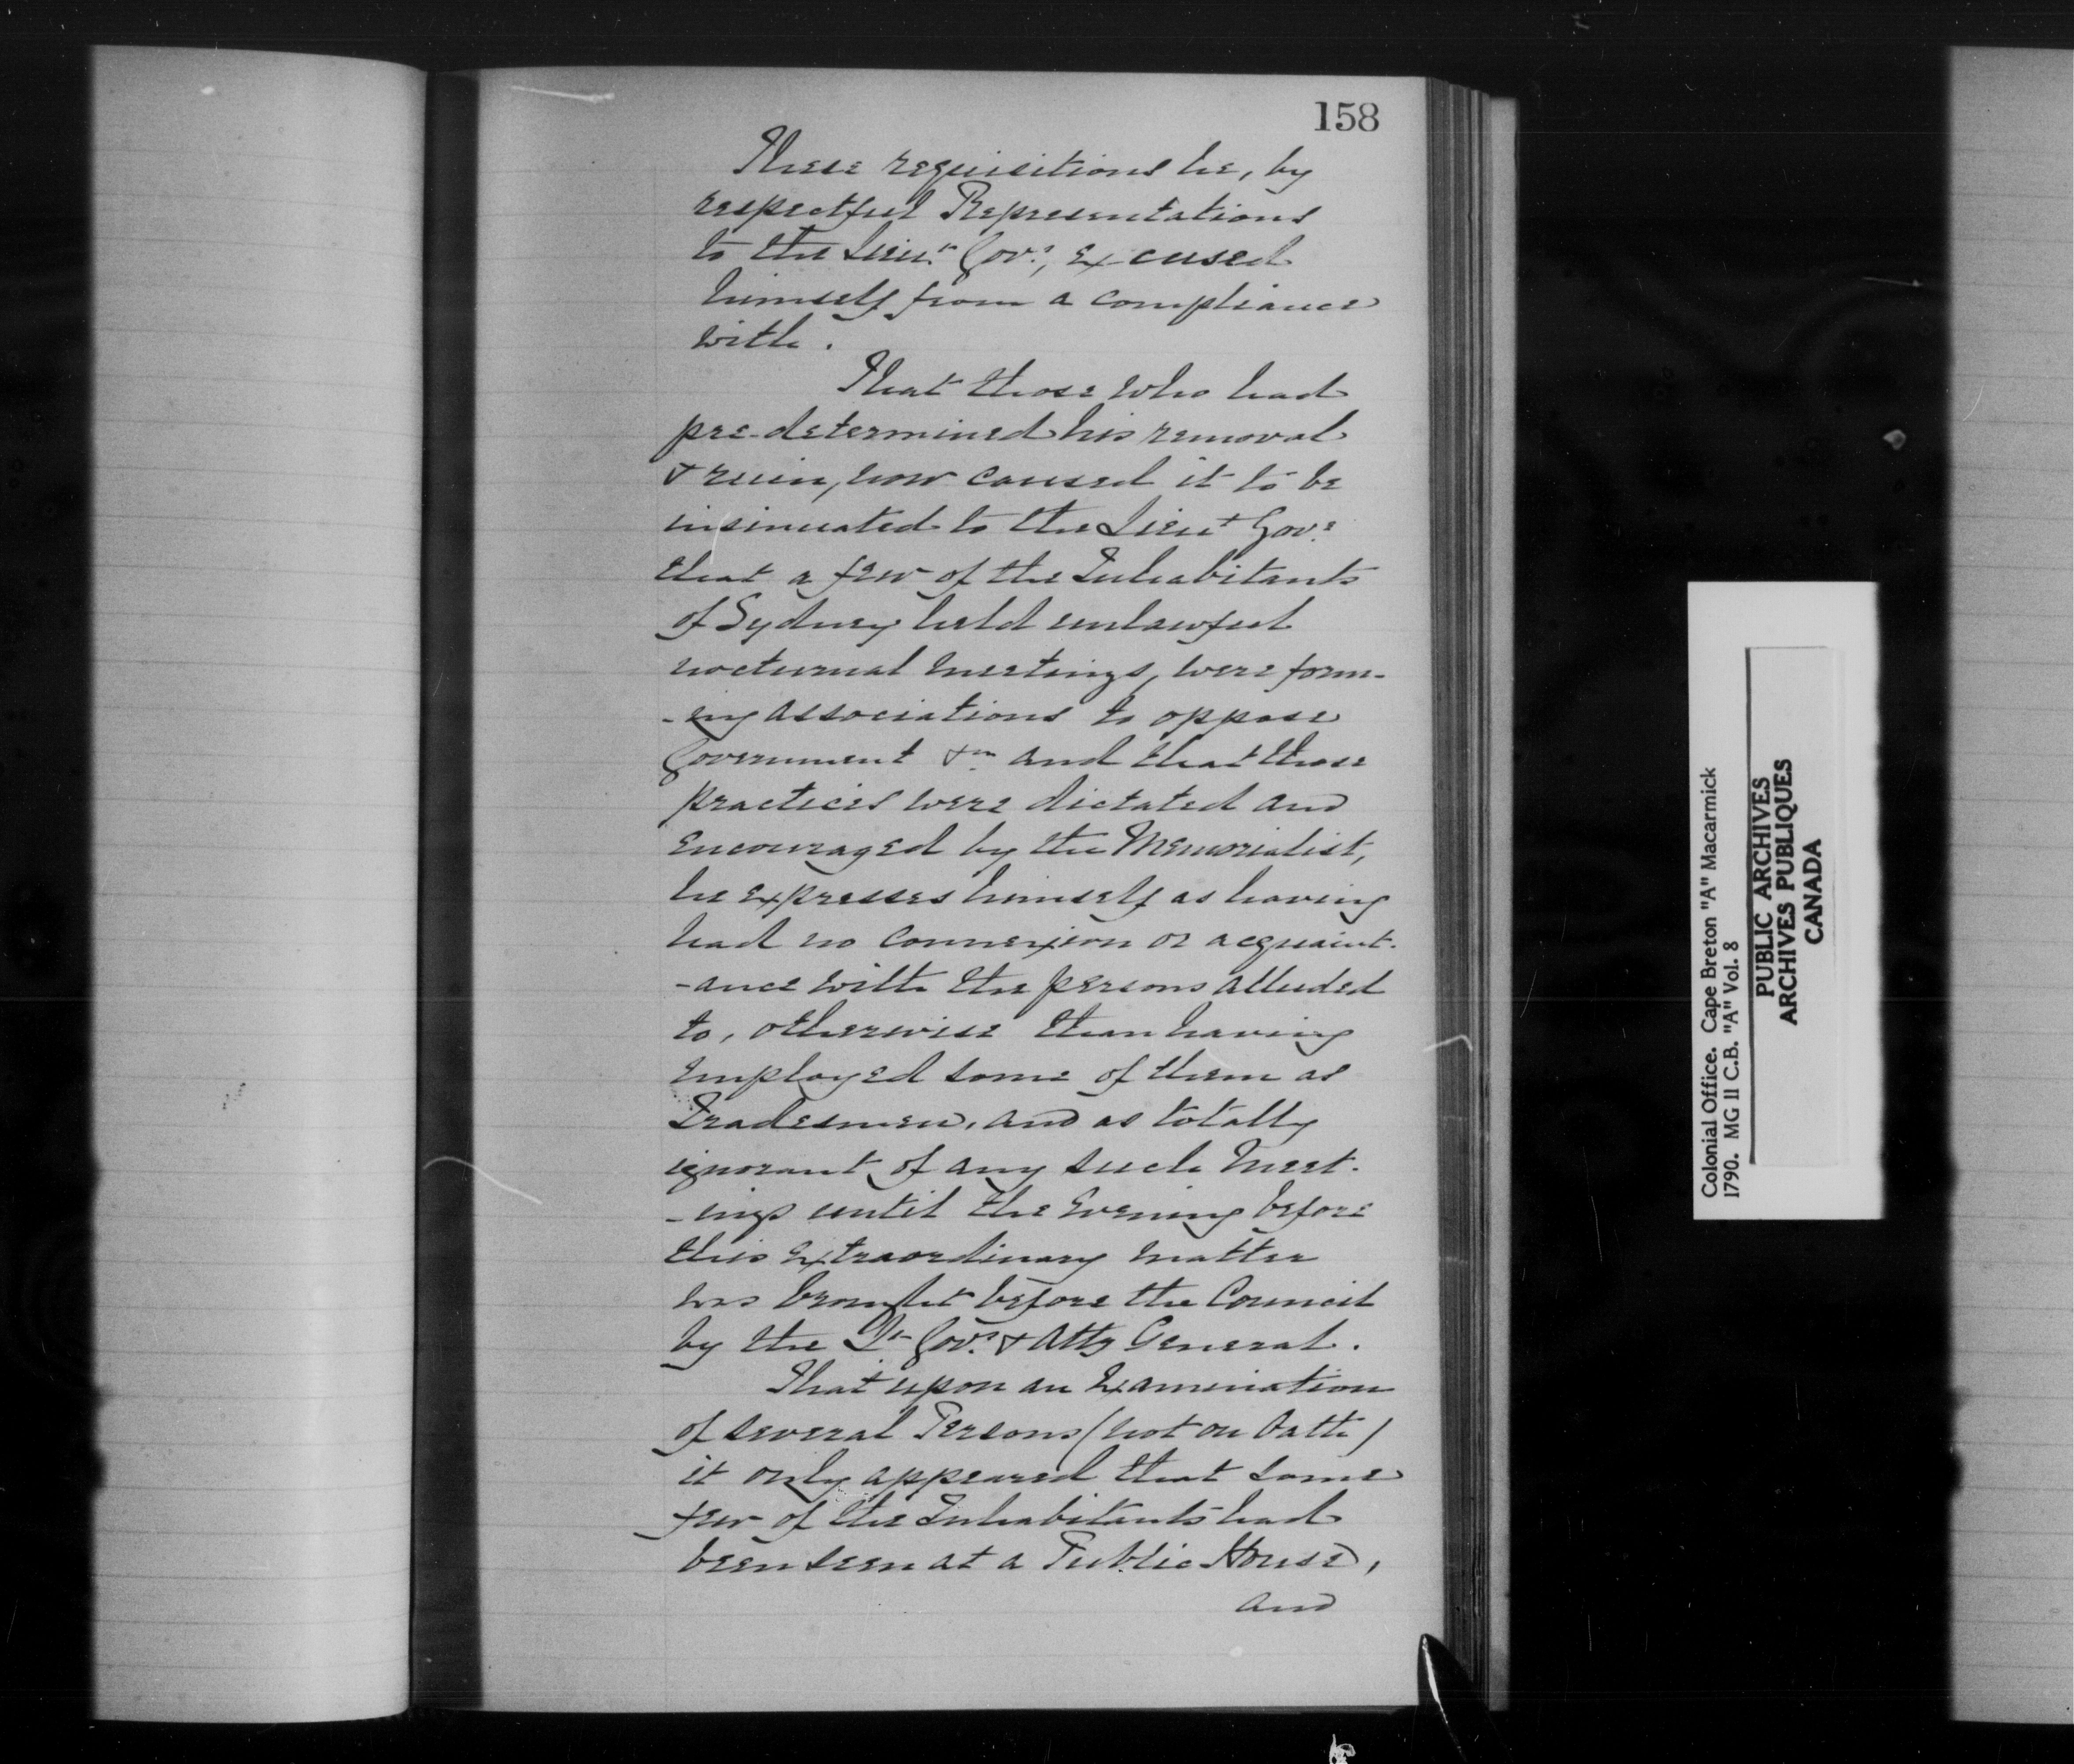 158
These requisitions he, by
respectful Representations
to the Lieut. Govr., excused
himself from a compliance
with.
That those who had
pre-determined his removal
& ruin, now caused it to be
insinuated to the Lieut Govr.
that a few of the Inhabitants
of Sydney held unlawful
nocturnal meetings, were form-
-ing associations to oppose
Government &ca and that those
practices were dictated and
encouraged by the Memorialist,
he expresses himself as having
had no connexion or acquaint-
-ance with the persons alluded
to, otherwise than having
employed some of them as
Tradesmen, and as totally
ignorant of any such Meet-
-ings until the Evening before
this extraordinary matter
was brought before the Council
by the Lt Govr. & Atty General.
That upon an Examination
of several Persons (not on Oath)
it only appeared that some
few of the Inhabitants had
been seen at a Public House,
and
Colonial Office. Cape Breton "A" Macarmick
1790. MG 11 C.B. "A" Vol. 8
PUBLIC ARCHIVES
ARCHIVES PUBLIQUES
CANADA